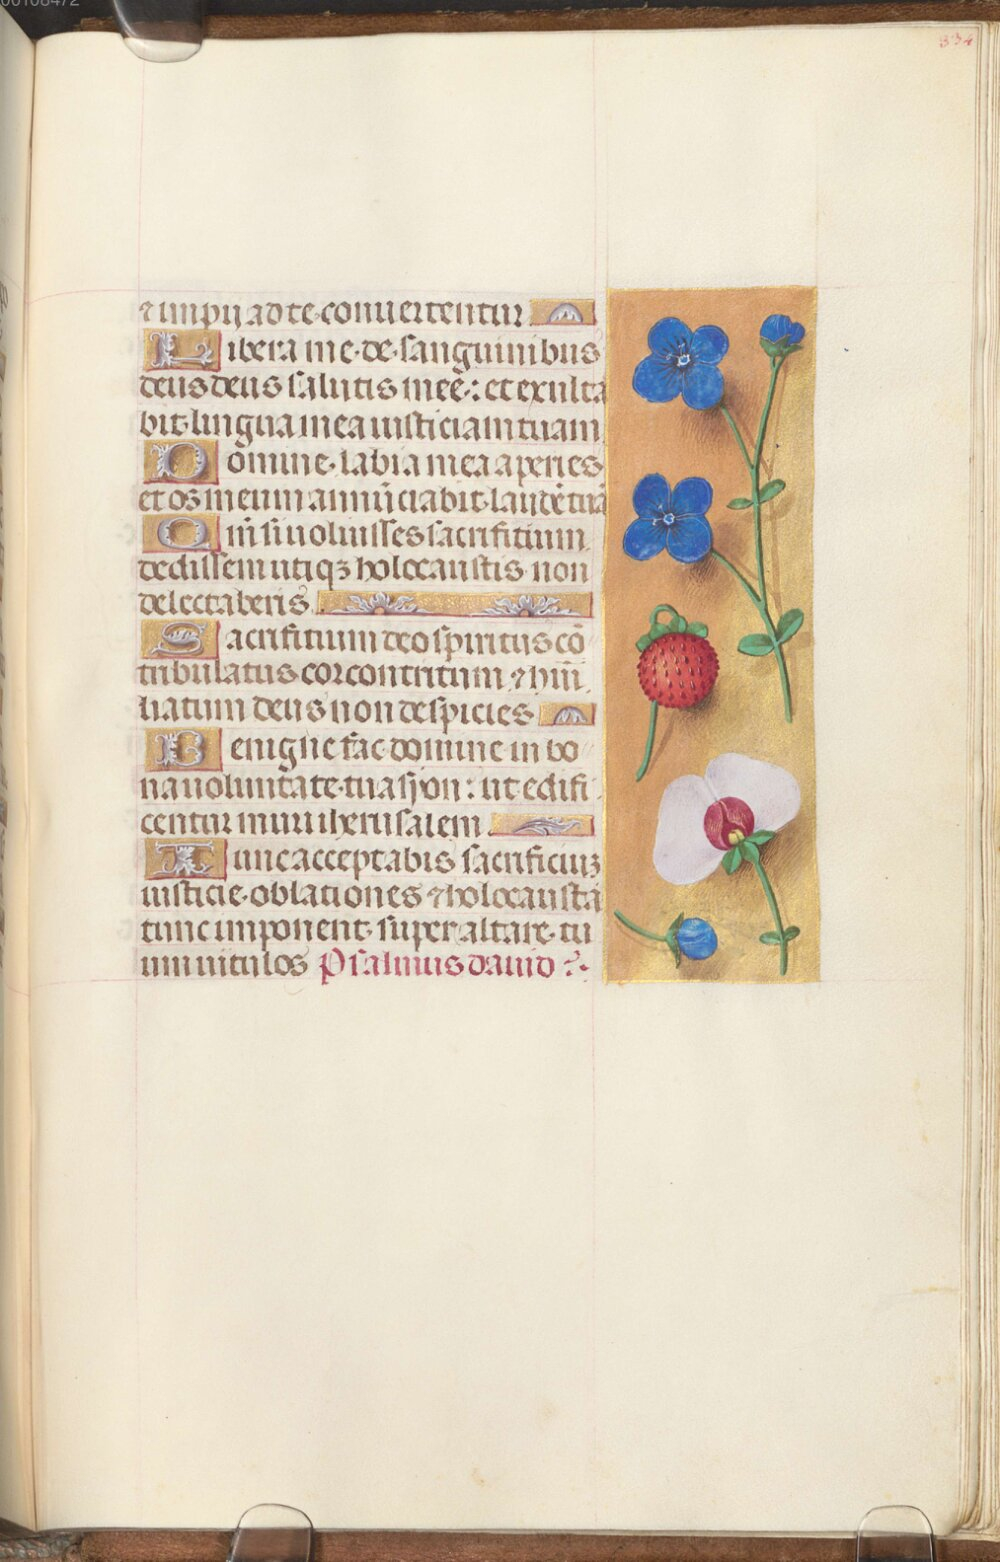 00108472
334
⁊ impij ad te conuertentur
Libera me de sanguinibus
deus deus salutis mee: et exulta
bit lingua mea iusticiam tuam
Domine labia mea aperies
et os meum annūciabit laudē tuā
Qm̄ si uoluisses sacrifitium
dedissem utiqꝫ holocaustis non
delectaberis
Sacrifitium deo spiritus cō
tribulatus cor contritum ⁊ hūi
liatum deus non despicies
Benigne fac domine in bo
na uoluntate tua syon: ut edifi
centur muri iherusalem
Tunc acceptabis sacrificiuꝫ
iusticie oblationes ⁊ holocausta
tunc imponent super altare tu
um uitulos Psalmus dauid